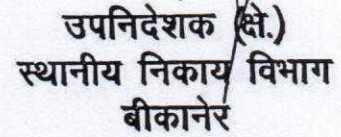 उपनिदेशक (क्षे.)
स्थानीय निकाय विभाग
बीकानेर